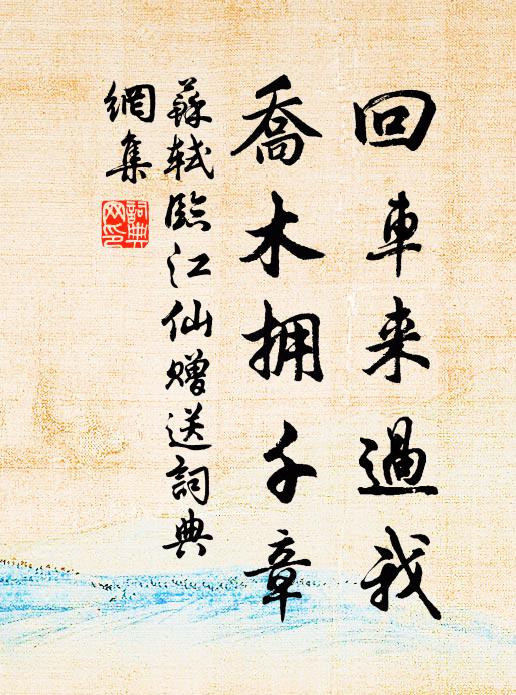 回車来過我
喬木拥千章
蘇軾臨江仙赠送詞典
網集
詞典
网印